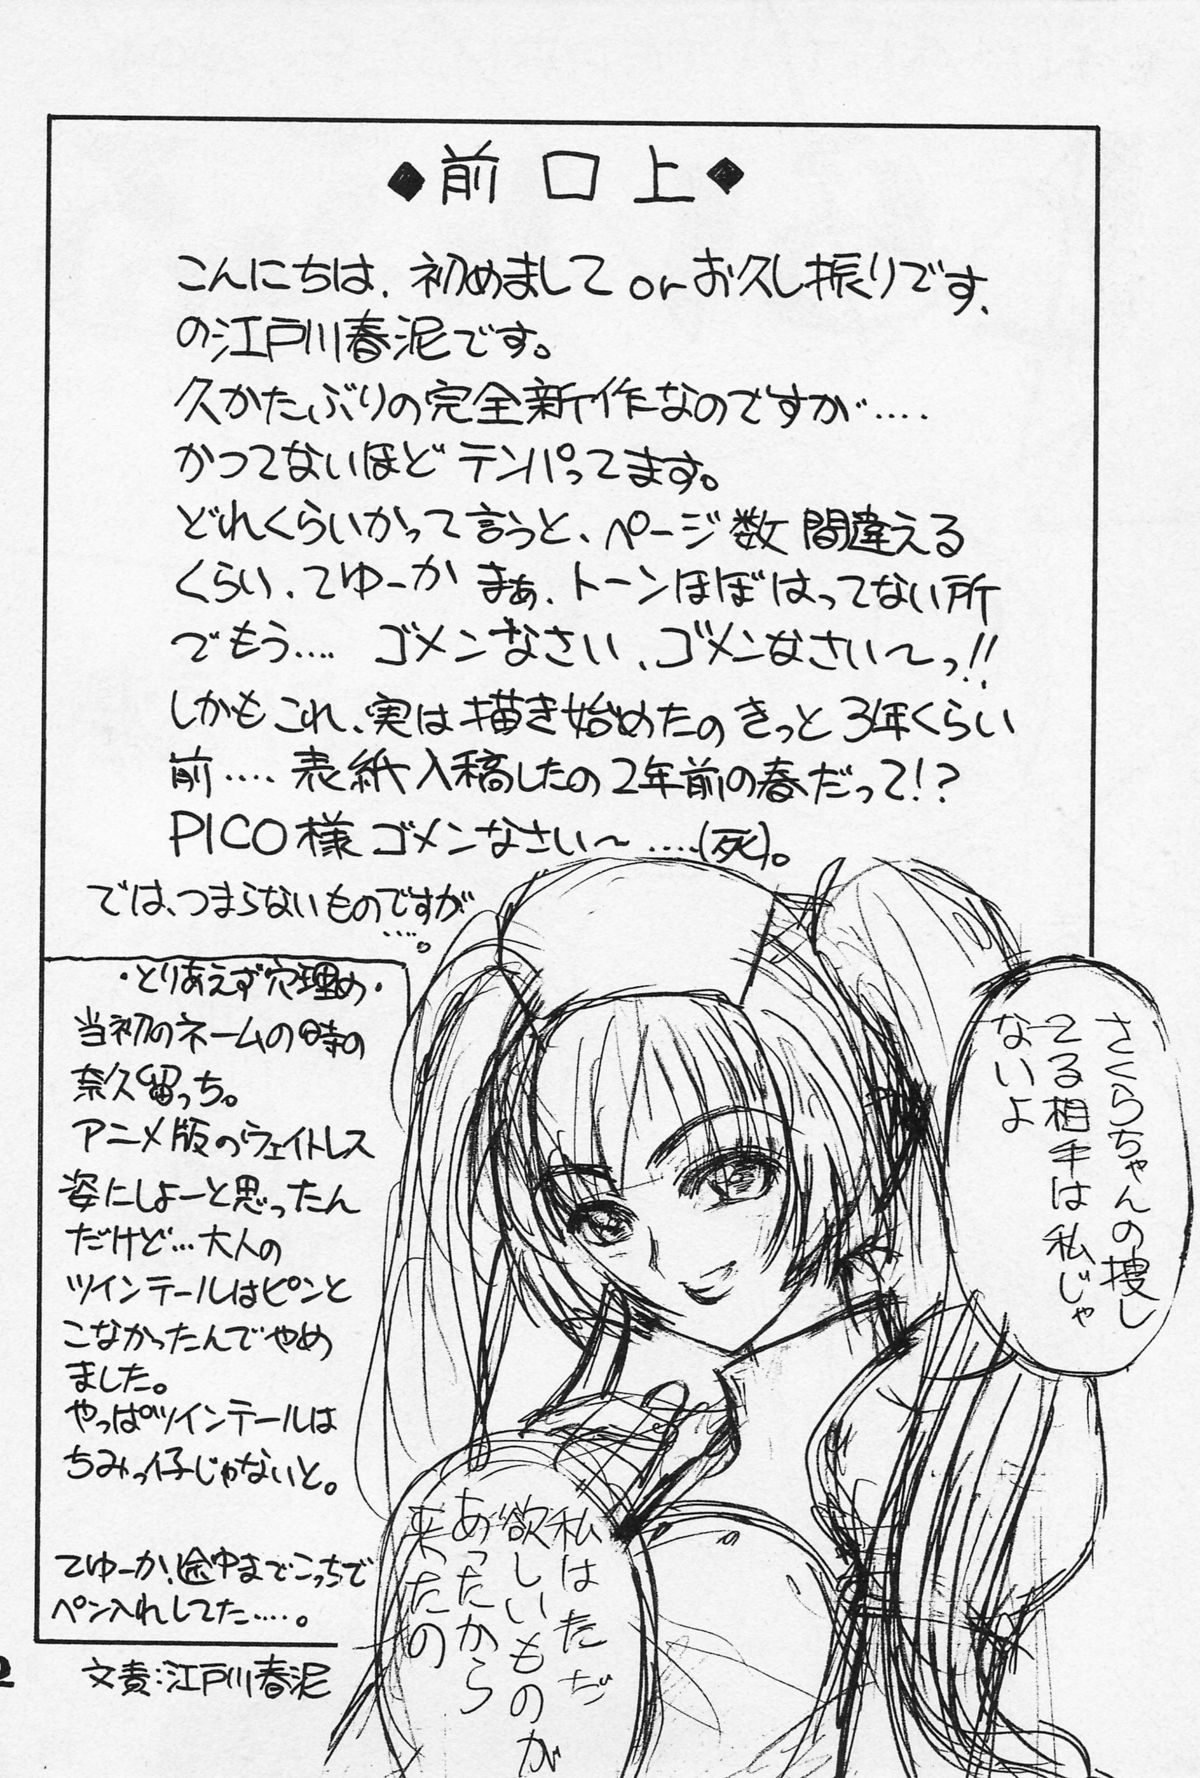 ◆前口上◆
こんにちは、初めまして or お久し振りです、
の江戸川春泥です。
久かたぶりの完全新作なのですが‥‥
かつてないほどテンパってます。
どれくらいかって言うと、ページ数間違える
くらい、てゆーか まぁ、トーンほぼはってない所
でもう‥‥ ゴメンなさい、ゴメンなさい〜っ!!
しかもこれ、実は描き始めたのきっと3年くらい
前‥‥ 表紙入稿したの2年前の春だって!?
PICO様ゴメンなさい〜‥‥(死)。
では、つまらないものですが
‥‥。
・とりあえず穴埋め・
当初のネームの時の
奈久留っち。
アニメ版のウェイトレス
姿にしよーと思ったん
だけど…大人の
ツインテールはピンと
こなかったんでやめ
ました。
やっぱツインテールは
ちみっ子じゃないと。
てゆーか、途中までこっちで
ペン入れしてた‥‥。
さくらちゃんの捜し
てる相手は私じゃ
ないよ
私はただ
欲しいものが
あったから
来たの
文責：江戸川春泥
2